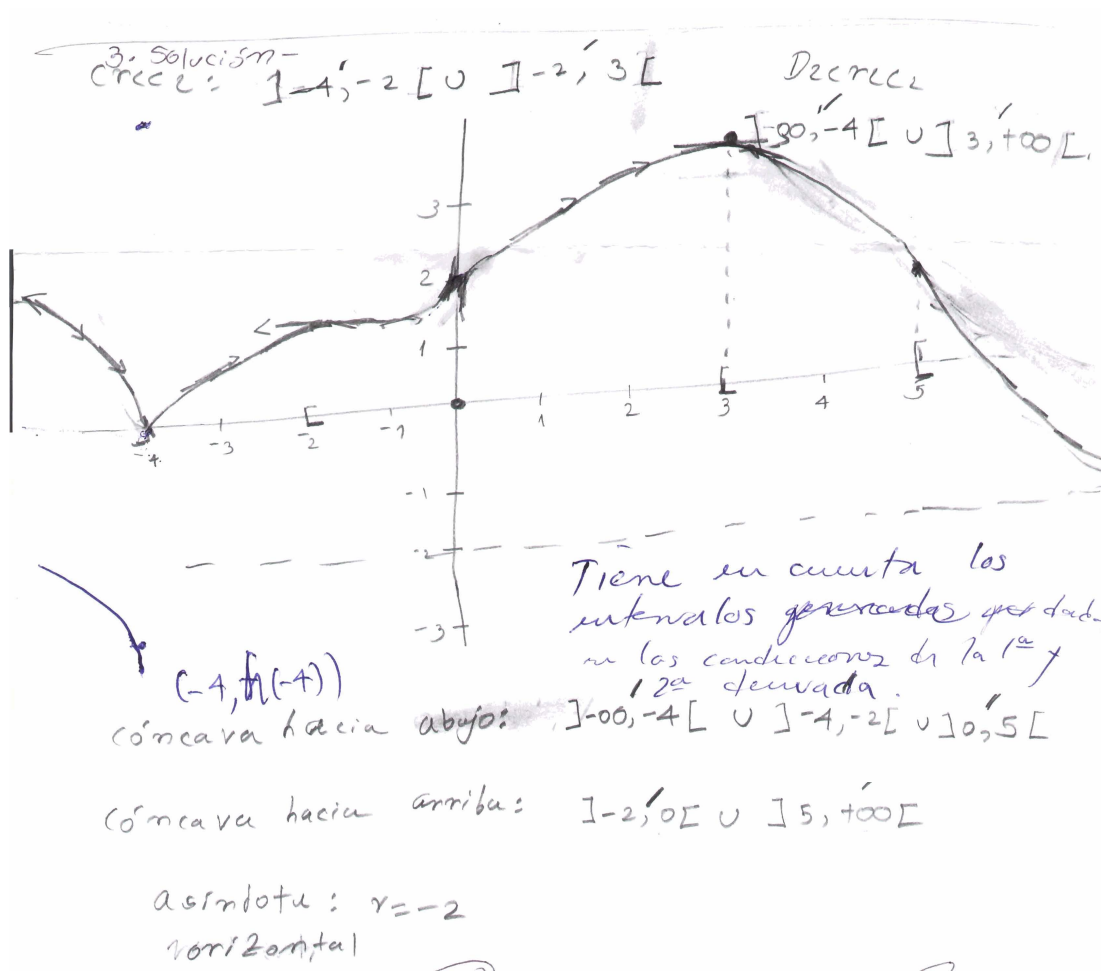 3. Solución-
crece: ]-4,-2[ ∪ ]-2, 3[
Decrece
]-∞,-4[ ∪ ]3,+∞[.
3
2
1
-4
-3
-2
-1
1
2
3
4
5
-1
-2
-3
Tiene en cuenta los
intervalos dad
en las condiciones de la 1ª y
2ª derivada.
(-4, h(-4))
cóncava hacia abajo: ]-∞,-4[ ∪ ]-4,-2[ ∪ ]0,5[
cóncava hacia arriba: ]-2,0[ ∪ ]5,+∞[
asíntota: y=-2
horizontal